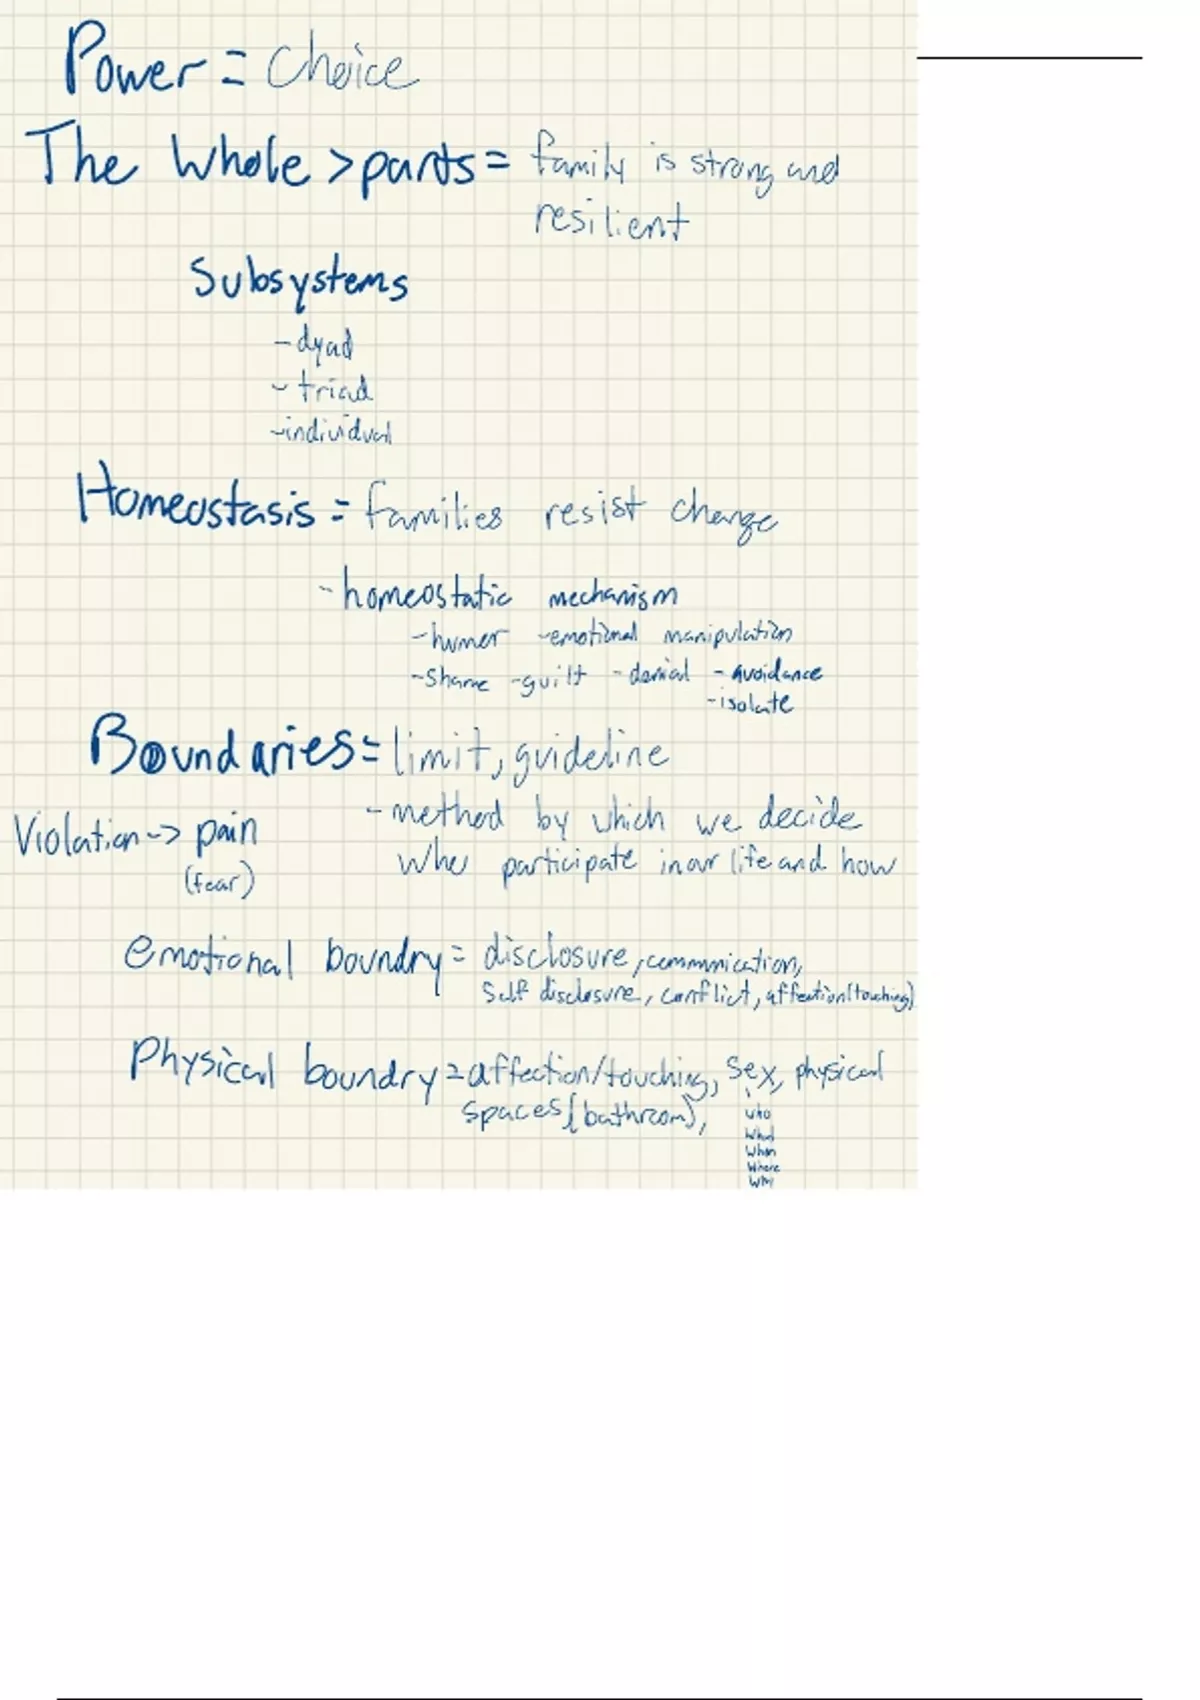 Power = Choice
The Whole > parts = family is strong and
resilient
Subsystems
- dyad
- triad
- individual
Homeostasis = families resist change
- homeostatic mechanism
- humor - emotional manipulation
- shame - guilt - denial - avoidance
- isolate
Boundaries = limit, guideline
Violation -> pain
(fear)
- method by which we decide
who participate in our life and how
emotional boundry = disclosure, communication,
self disclosure, conflict, affection(touching)
Physical boundry = affection/touching, sex, physical
spaces (bathroom),
who
what
when
where
why